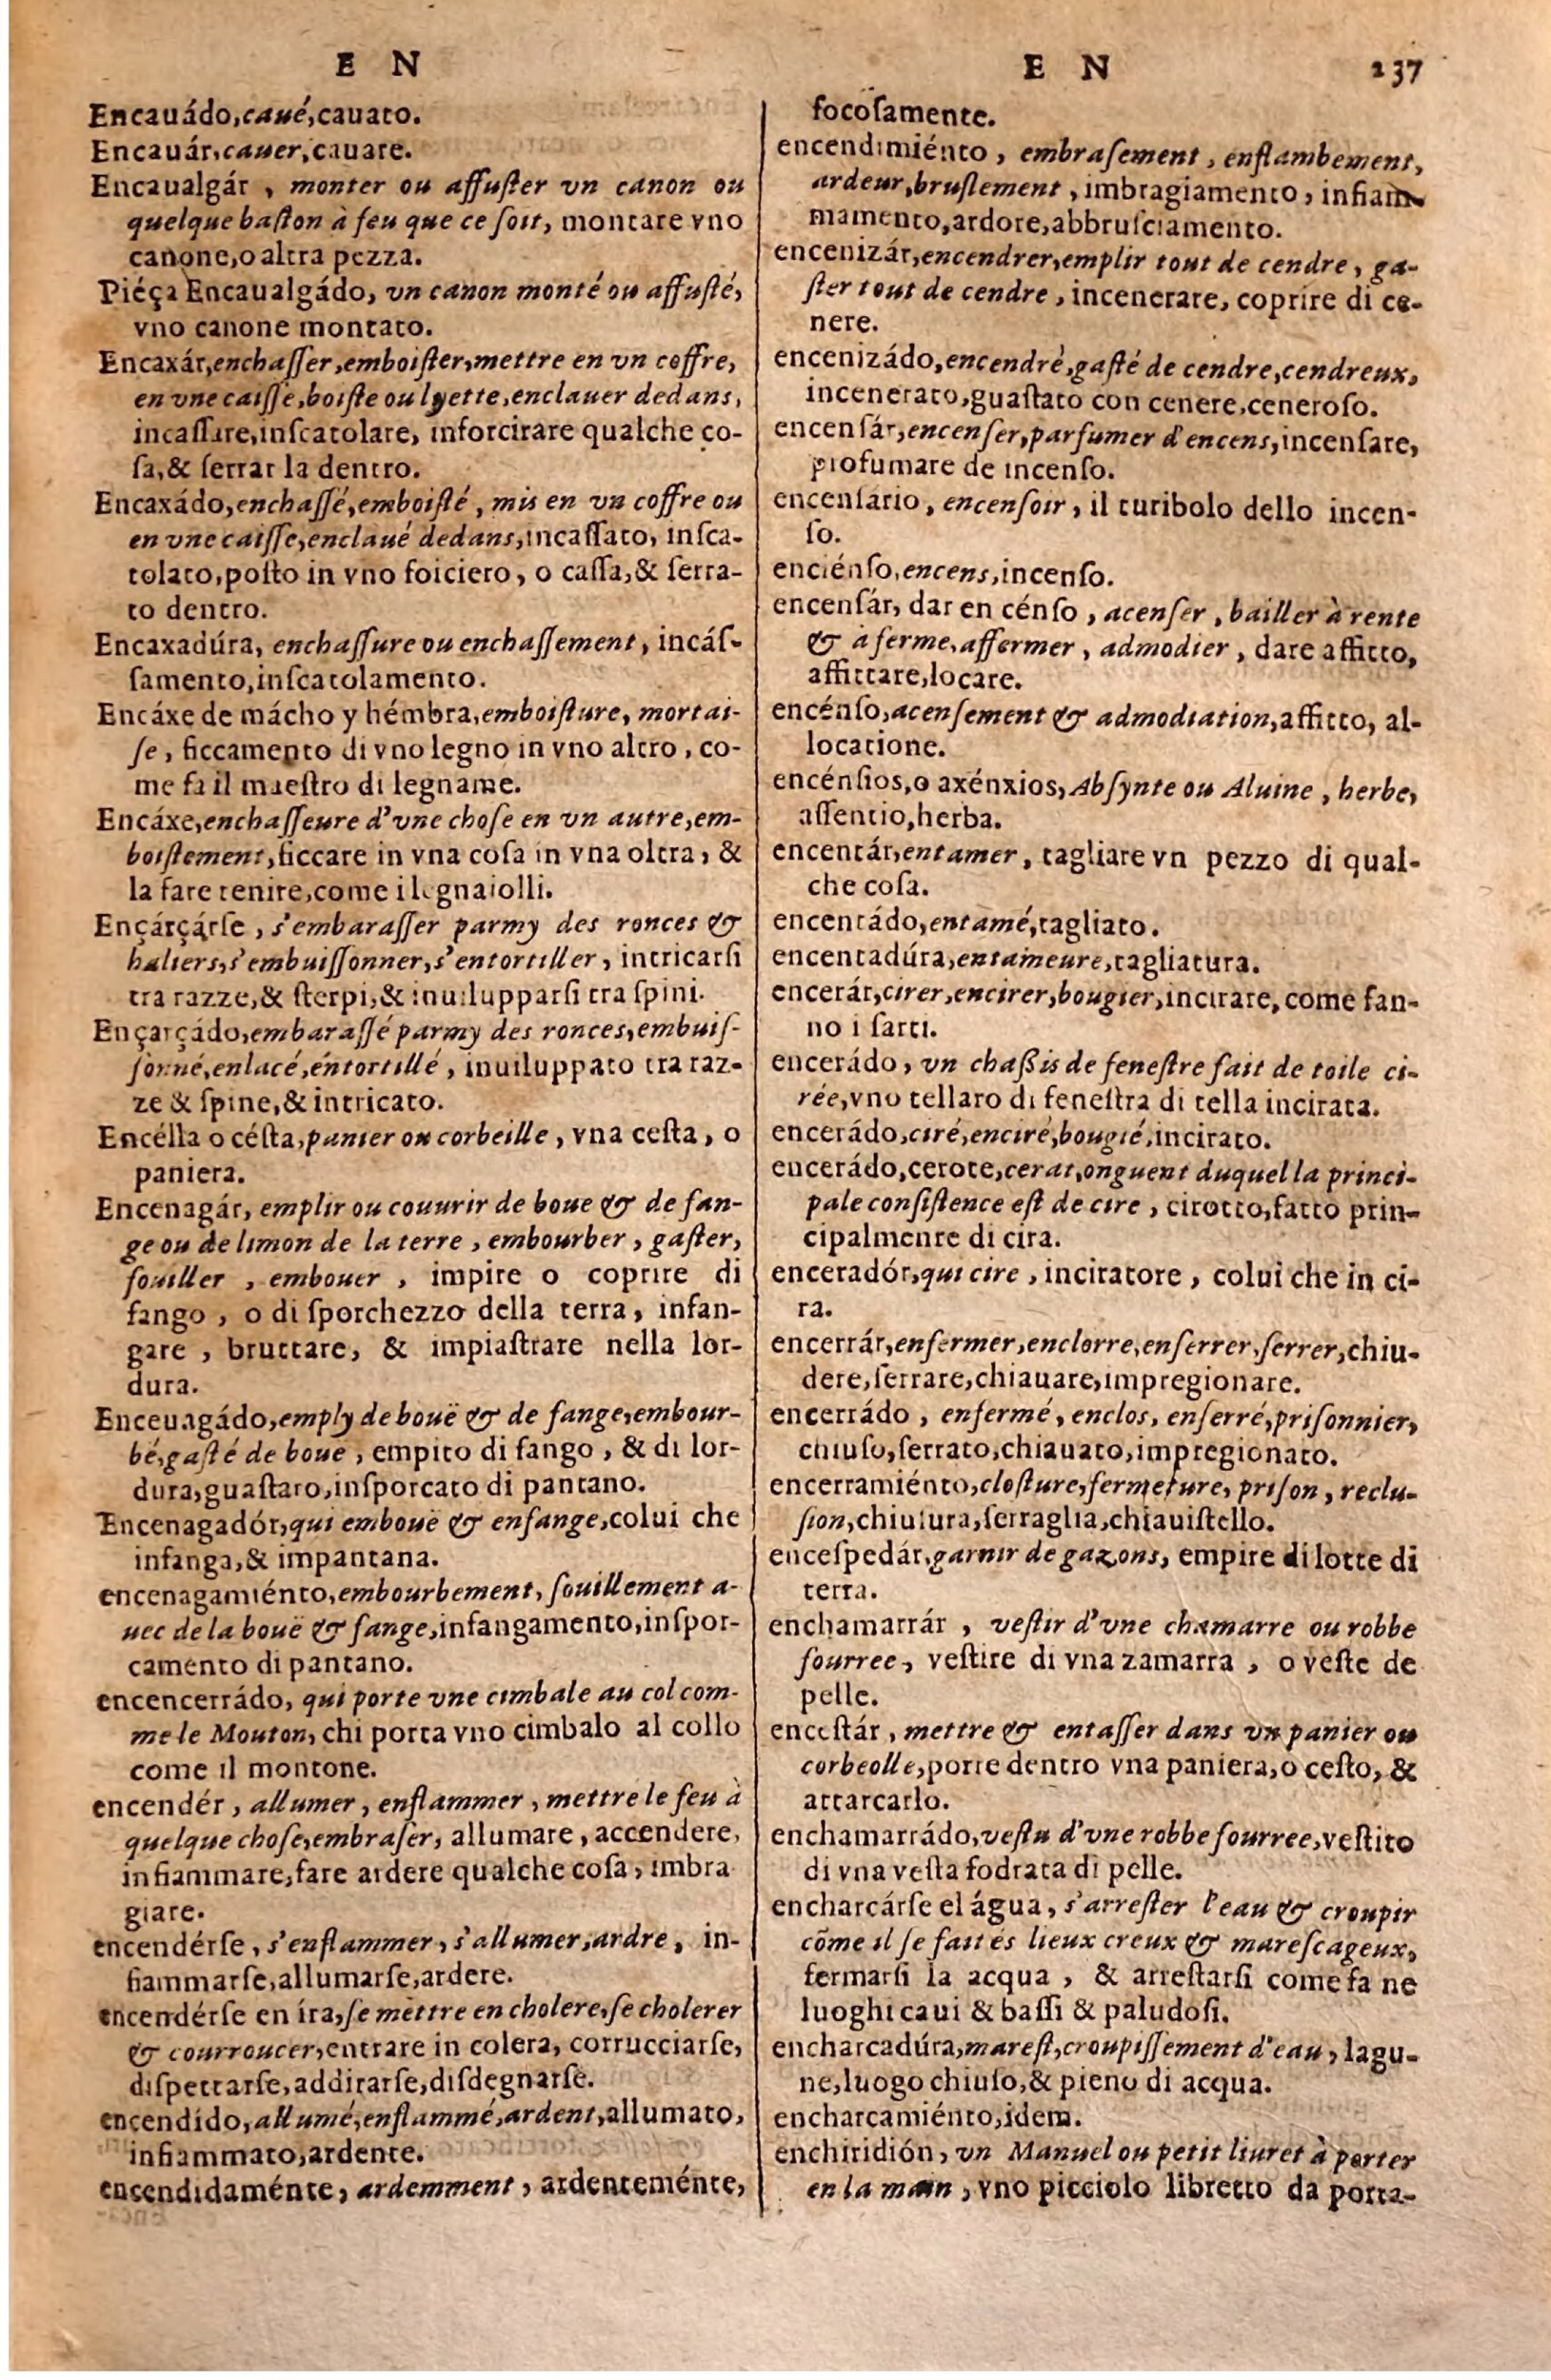 E N
Encauádo,caué,cauato.
Encauár,cauer,cauare.
Encaualgár , monter ou affuſter vn canon ou
quelque baſton à feu que ce ſoit, montare vno
canone,o altra pezza.
Piéça Encaualgádo, vn canon monté ou affuſté,
vno canone montato.
Encaxár,enchaſſer,emboiſter,mettre en vn coffre,
en vne caiſſe,boiſte ou lyette,enclauer dedans,
incaſſare,inſcatolare, inforcirare qualche co-
ſa,& ſerrar la dentro.
Encaxádo,enchaſſé,emboiſté , mis en vn coffre ou
en vne caiſſe,enclaué dedans,incaſſato, inſca-
tolato,poſto in vno foiciero, o caſſa,& ſerra-
to dentro.
Encaxadúra, enchaſſure ou enchaſſement , incáſ-
ſamento,inſcatolamento.
Encáxe de mácho y hémbra,emboiſture, mortai-
ſe , ficcamento di vno legno in vno altro , co-
me fa il maeſtro di legname.
Encáxe,enchaſſeure d'vne choſe en vn autre,em-
boiſtement,ficcare in vna coſa in vna oltra, &
la fare tenire,come i legnaiolli.
Ençárçárſe , s'embaraſſer parmy des ronces &
haliers,s'embuiſſonner,s'entortiller , intricarſi
tra razze,& ſterpi,& inuilupparſi tra ſpini.
Ençarçádo,embaraſſé parmy des ronces,embuiſ-
ſonné,enlacé,éntortillé , inuiluppato tra raz-
ze & ſpine,& intricato.
Encélla o céſta,panier ou corbeille , vna ceſta, o
paniera.
Encenagár, emplir ou couurir de boue & de fan-
ge ou de limon de la terre , embourber , gaſter,
ſouiller , embouer , impire o coprire di
fango , o di ſporchezzo della terra, infan-
gare , bruttare, & impiaſtrare nella lor-
dura.
Enceuagádo,emply de bouë & de fange,embour-
bé,gaſté de boue , empito di fango , & di lor-
dura,guaſtaro,inſporcato di pantano.
Encenagadór,qui emboue & enfange,colui che
infanga,& impantana.
encenagamiénto,embourbement, ſouillement a-
uec de la bouë & fange,infangamento,inſpor-
camento di pantano.
encencerrádo, qui porte vne cimbale au col com-
me le Mouton, chi porta vno cimbalo al collo
come il montone.
encendér , allumer , enflammer , mettre le feu à
quelque choſe,embraſer, allumare , accendere,
infiammare,fare ardere qualche coſa, imbra
giare.
encendérſe , s'enflammer , s'allumer,ardre , in-
fiammarſe,allumarſe,ardere.
encendérſe en íra,ſe mettre en cholere,ſe cholerer
& courroucer,entrare in colera, corrucciarſe,
diſpettarſe,addirarſe,diſdegnarſe.
encendído,allumé,enflammé,ardent,allumato,
infiammato,ardente.
encendidaménte, ardemment , ardenteménte,
E N 237
focoſamente.
encendimiénto , embraſement , enflambement,
ardeur,bruſlement , imbragiamento, infiam-
mamento,ardore,abbruſciamento.
encenizár,encendrer,emplir tout de cendre, ga-
ſter tout de cendre , incenerare, coprire di ce-
nere.
encenizádo,encendré,gaſté de cendre,cendreux,
incenerato,guaſtato con cenere,ceneroſo.
encenſár,encenſer,parfumer d'encens,incenſare,
profumare de incenſo.
encenſário , encenſoir , il turibolo dello incen-
ſo.
enciénſo,encens,incenſo.
encenſár, dar en cénſo , acenſer , bailler à rente
& à ferme,affermer , admodier , dare affitto,
affittare,locare.
encénſo,acenſement & admodiation,affitto, al-
locatione.
encénſios,o axénxios,Abſynte ou Aluine , herbe,
aſſentio,herba.
encentár,entamer , tagliare vn pezzo di qual-
che coſa.
encentádo,entamé,tagliato.
encentadúra,entameure,tagliatura.
encerár,cirer,encirer,bougier,incirare, come fan-
no i ſarti.
encerádo , vn chaßis de feneſtre fait de toile ci-
rée,vno tellaro di feneſtra di tella incirata.
encerádo,ciré,enciré,bougié,incirato.
encerádo,cerote,cerat,onguent duquel la princi-
pale conſiſtence eſt de cire , cirotto,fatto prin-
cipalmente di cira.
enceradór,qui cire , inciratore , colui che in ci-
ra.
encerrár,enfermer,enclorre,enſerrer,ſerrer,chiu-
dere,ſerrare,chiauare,impregionare.
encerrádo , enfermé, enclos, enſerré,priſonnier,
chiuſo,ſerrato,chiauato,impregionato.
encerramiénto,cloſture,fermeture, priſon , reclu-
ſion,chiuſura,ſerraglia,chiauiſtello.
enceſpedár,garnir de gazons, empire di lotte di
terra.
enchamarrár , veſtir d'vne chamarre ou robbe
fourree, veſtire di vna zamarra , o veſte de
pelle.
enceſtár , mettre & entaſſer dans vn panier ou
corbeolle,porre dentro vna paniera,o ceſto, &
attarcarlo.
enchamarrádo,veſtu d'vne robbe fourree,veſtito
di vna veſta fodrata di pelle.
encharcárſe el água , s'arreſter l'eau & croupir
cõme il ſe fait és lieux creux & mareſcageux,
fermarſi la acqua , & arreſtarſi come fa ne
luoghi caui & baſſi & paludoſi.
encharcadúra,mareſt,croupiſſement d'eau, lagu-
ne,luogo chiuſo,& pieno di acqua.
encharcamiénto,idem.
enchiridión, vn Manuel ou petit liuret à porter
en la main , vno picciolo libretto da porta-